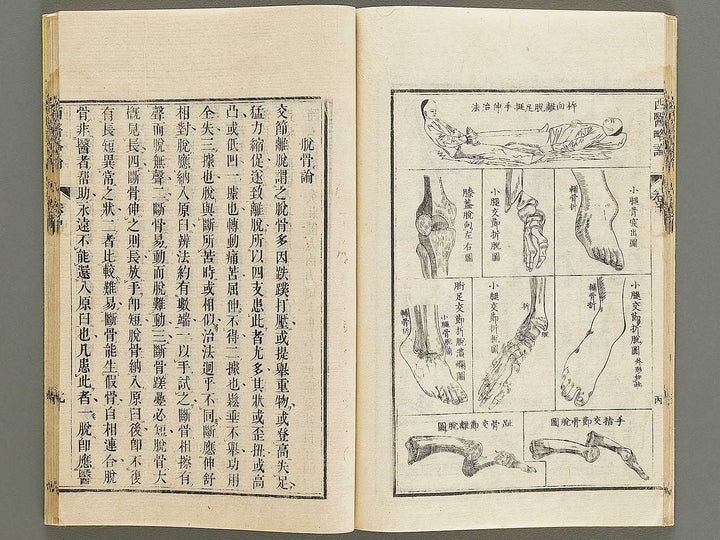 西醫略論
離脫足手伸治法
小腿骨突出圖
輔骨折
小腿交節折脫圖
膝蓋脫向左右圖
小腿交節折脫圖 外形如此
輔骨折
小腿交節折脫圖
折
胕足交節折脫潰爛圖
小腿骨
輔骨折
手指交節骨脫圖
趾骨交節離脫圖
脫骨論
交節離脫謂之脫骨多因跌蹼打壓或提舉重物或登高失足
猛力縮促遂致離脫所以四支患此者尤多其狀或歪扭或高
凸或低凹一據也轉動痛苦屈伸不得二據也鬆垂不舉功用
全失三據也脫與斷所苦時或相似治法迥乎不同斷應伸舒
相對脫應納入原臼辨法約有數端一以手試之斷骨相擦有
聲而脫無聲二斷骨易動而脫難動三斷骨蹉疊必短脫骨大
槪見長四斷骨伸之則長放手卽短脫骨納入原臼後卽不復
有長短異常之狀二者比較難易斷骨能生假骨自相連合脫
骨非醫者帮助永遠不能還入原臼也凡患此者一脫卽應醫
西醫略論
九